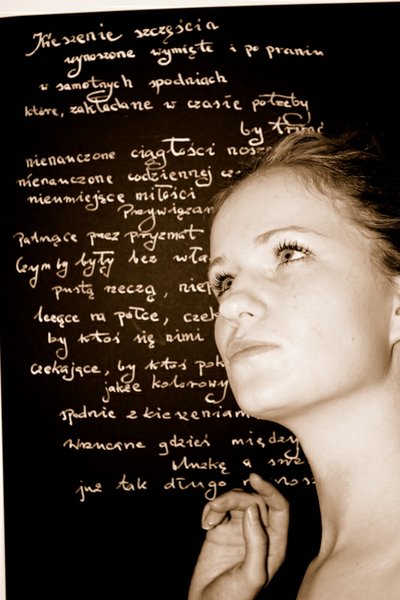 Kieszenie szczęścia
wynoszone wymięte i po praniu
w samotnych spodniach
które, zakładane w czasie potrzeby
by trwać
nienauczone ciągłości
nienauczone codziennej
nieumiejące miłości
Przywiązan
patrzące przez pryzmat
Czym by były bez
pustą rzeczą,
leżące na półce,
by ktoś się nimi
czekające, by ktoś
jakże kolorowy
spodnie z kieszeniam
wrzucane gdzieś między
bluzkę a
już tak długo